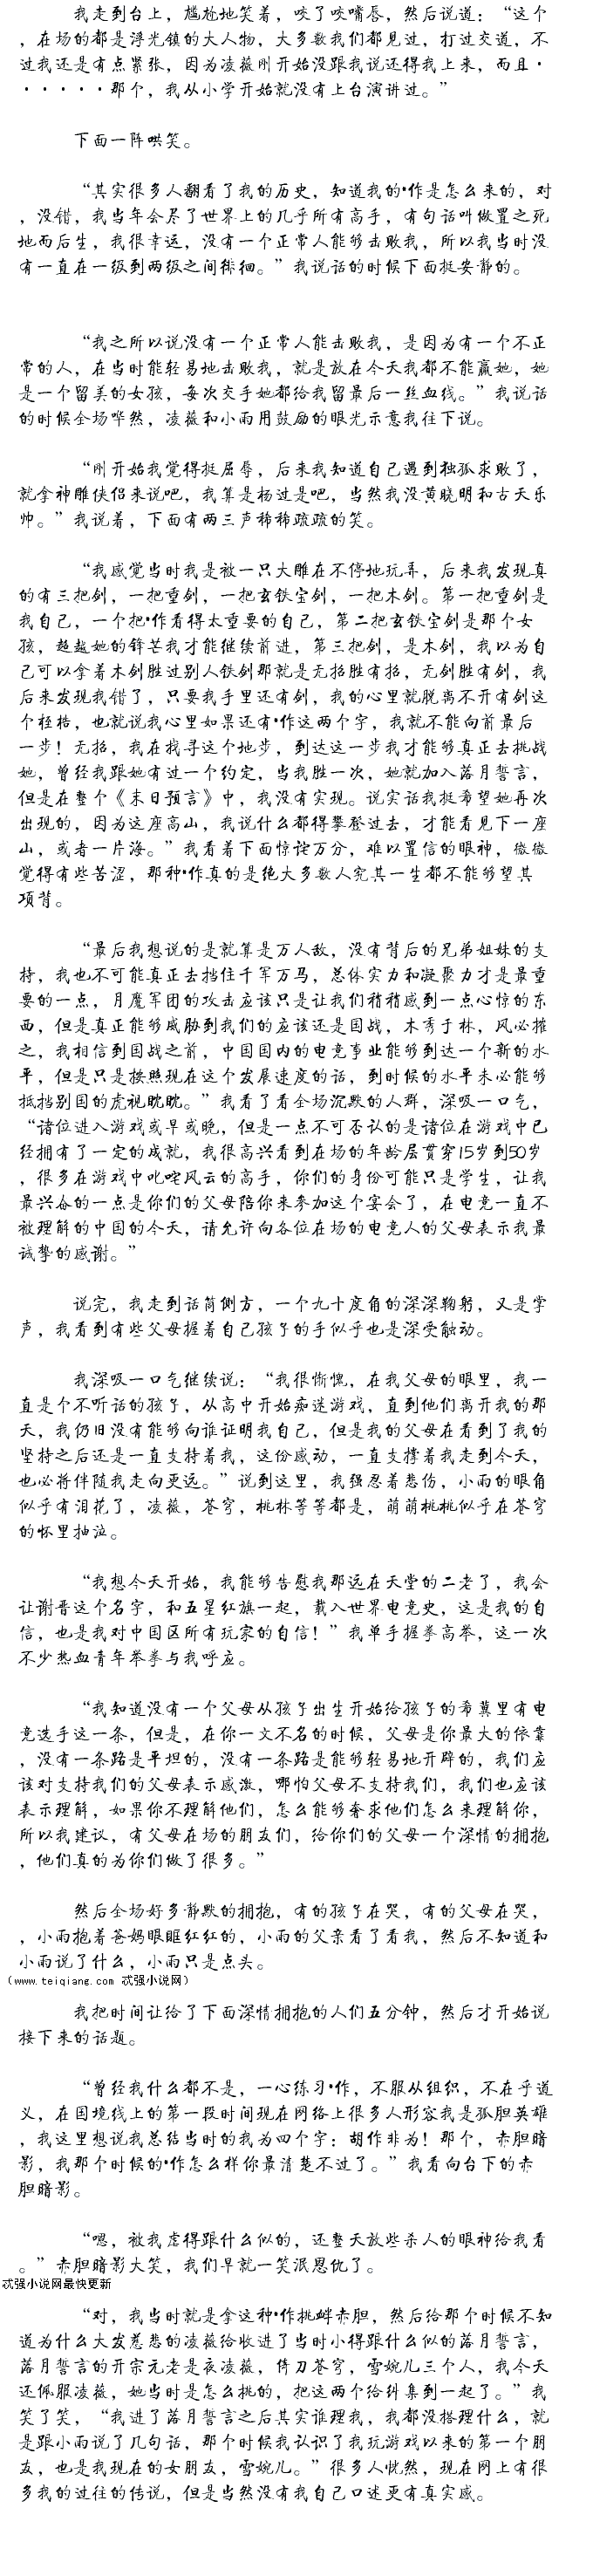 我走到台上，尴尬地笑着，咬了咬嘴唇，然后说道：“这个
，在场的都是浮光镇的大人物，大多数我们都见过，打过交道，不
过我还是有点紧张，因为凌薇刚开始没跟我说还得我上来，而且·
·····那个，我从小学开始就没有上台演讲过。”
下面一阵哄笑。
“其实很多人翻看了我的历史，知道我的·作是怎么来的，对
，没错，我当年会尽了世界上的几乎所有高手，有句话叫做置之死
地而后生，我很幸运，没有一个正常人能够击败我，所以我当时没
有一直在一级到两级之间徘徊。”我说话的时候下面挺安静的。
“我之所以说没有一个正常人能击败我，是因为有一个不正
常的人，在当时能轻易地击败我，就是放在今天我都不能赢她，她
是一个留美的女孩，每次交手她都给我留最后一丝血线。”我说话
的时候全场哗然，凌薇和小雨用鼓励的眼光示意我往下说。
“刚开始我觉得挺屈辱，后来我知道自己遇到独孤求败了，
就拿神雕侠侣来说吧，我算是杨过是吧，当然我没黄晓明和古天乐
帅。”我说着，下面有两三声稀稀疏疏的笑。
“我感觉当时我是被一只大雕在不停地玩弄，后来我发现真
的有三把剑，一把重剑，一把玄铁宝剑，一把木剑。第一把重剑是
我自己，一个把·作看得太重要的自己，第二把玄铁宝剑是那个女
孩，超越她的锋芒我才能继续前进，第三把剑，是木剑，我以为自
己可以拿着木剑胜过别人铁剑那就是无招胜有招，无剑胜有剑，我
后来发现我错了，只要我手里还有剑，我的心里就脱离不开有剑这
个桎梏，也就说我心里如果还有·作这两个字，我就不能向前最后
一步！无招，我在找寻这个地步，到达这一步我才能够真正去挑战
她，曾经我跟她有过一个约定，当我胜一次，她就加入落月誓言，
但是在整个《末日预言》中，我没有实现。说实话我挺希望她再次
出现的，因为这座高山，我说什么都得攀登过去，才能看见下一座
山，或者一片海。”我看着下面惊诧万分，难以置信的眼神，微微
觉得有些苦涩，那种·作真的是绝大多数人究其一生都不能够望其
项背。
“最后我想说的是就算是万人敌，没有背后的兄弟姐妹的支
持，我也不可能真正去挡住千军万马，总体实力和凝聚力才是最重
要的一点，月魔军团的攻击应该只是让我们稍稍感到一点心惊的东
西，但是真正能够威胁到我们的应该还是国战，木秀于林，风必摧
之，我相信到国战之前，中国国内的电竞事业能够到达一个新的水
平，但是只是按照现在这个发展速度的话，到时候的水平未必能够
抵挡别国的虎视眈眈。”我看了看全场沉默的人群，深吸一口气，
“诸位进入游戏或早或晚，但是一点不可否认的是诸位在游戏中已
经拥有了一定的成就，我很高兴看到在场的年龄层贯穿15岁到50岁
，很多在游戏中叱咤风云的高手，你们的身份可能只是学生，让我
最兴奋的一点是你们的父母陪你来参加这个宴会了，在电竞一直不
被理解的中国的今天，请允许向各位在场的电竞人的父母表示我最
诚挚的感谢。”
说完，我走到话筒侧方，一个九十度角的深深鞠躬，又是掌
声，我看到有些父母握着自己孩子的手似乎也是深受触动。
我深吸一口气继续说：“我很惭愧，在我父母的眼里，我一
直是个不听话的孩子，从高中开始痴迷游戏，直到他们离开我的那
天，我仍旧没有能够向谁证明我自己，但是我的父母在看到了我的
坚持之后还是一直支持着我，这份感动，一直支撑着我走到今天，
也必将伴随我走向更远。”说到这里，我强忍着悲伤，小雨的眼角
似乎有泪花了，凌薇，苍穹，桃林等等都是，萌萌桃桃似乎在苍穹
的怀里抽泣。
“我想今天开始，我能够告慰我那远在天堂的二老了，我会
让谢晋这个名字，和五星红旗一起，载入世界电竞史，这是我的自
信，也是我对中国区所有玩家的自信！”我单手握拳高举，这一次
不少热血青年举拳与我呼应。
“我知道没有一个父母从孩子出生开始给孩子的希冀里有电
竞选手这一条，但是，在你一文不名的时候，父母是你最大的依靠
，没有一条路是平坦的，没有一条路是能够轻易地开辟的，我们应
该对支持我们的父母表示感激，哪怕父母不支持我们，我们也应该
表示理解，如果你不理解他们，怎么能够奢求他们怎么来理解你，
所以我建议，有父母在场的朋友们，给你们的父母一个深情的拥抱
，他们真的为你们做了很多。”
然后全场好多静默的拥抱，有的孩子在哭，有的父母在哭，
，小雨抱着爸妈眼眶红红的，小雨的父亲看了看我，然后不知道和
小雨说了什么，小雨只是点头。
（www.teiqiang.com 忒强小说网）
我把时间让给了下面深情拥抱的人们五分钟，然后才开始说
接下来的话题。
“曾经我什么都不是，一心练习·作，不服从组织，不在乎道
义，在国境线上的第一段时间现在网络上很多人形容我是孤胆英雄
，我这里想说我总结当时的我为四个字：胡作非为！那个，赤胆暗
影，我那个时候的·作怎么样你最清楚不过了。”我看向台下的赤
胆暗影。
“嗯，被我虐得跟什么似的，还整天放些杀人的眼神给我看
。”赤胆暗影大笑，我们早就一笑泯恩仇了。
忒强小说网最快更新
“对，我当时就是拿这种·作挑衅赤胆，然后给那个时候不知
道为什么大发慈悲的凌薇给收进了当时小得跟什么似的落月誓言，
落月誓言的开宗元老是夜凌薇，倚刀苍穹，雪婉儿三个人，我今天
还佩服凌薇，她当时是怎么挑的，把这两个给纠集到一起了。”我
笑了笑，“我进了落月誓言之后其实谁理我，我都没搭理什么，就
是跟小雨说了几句话，那个时候我认识了我玩游戏以来的第一个朋
友，也是我现在的女朋友，雪婉儿。”很多人恍然，现在网上有很
多我的过往的传说，但是当然没有我自己口述更有真实感。